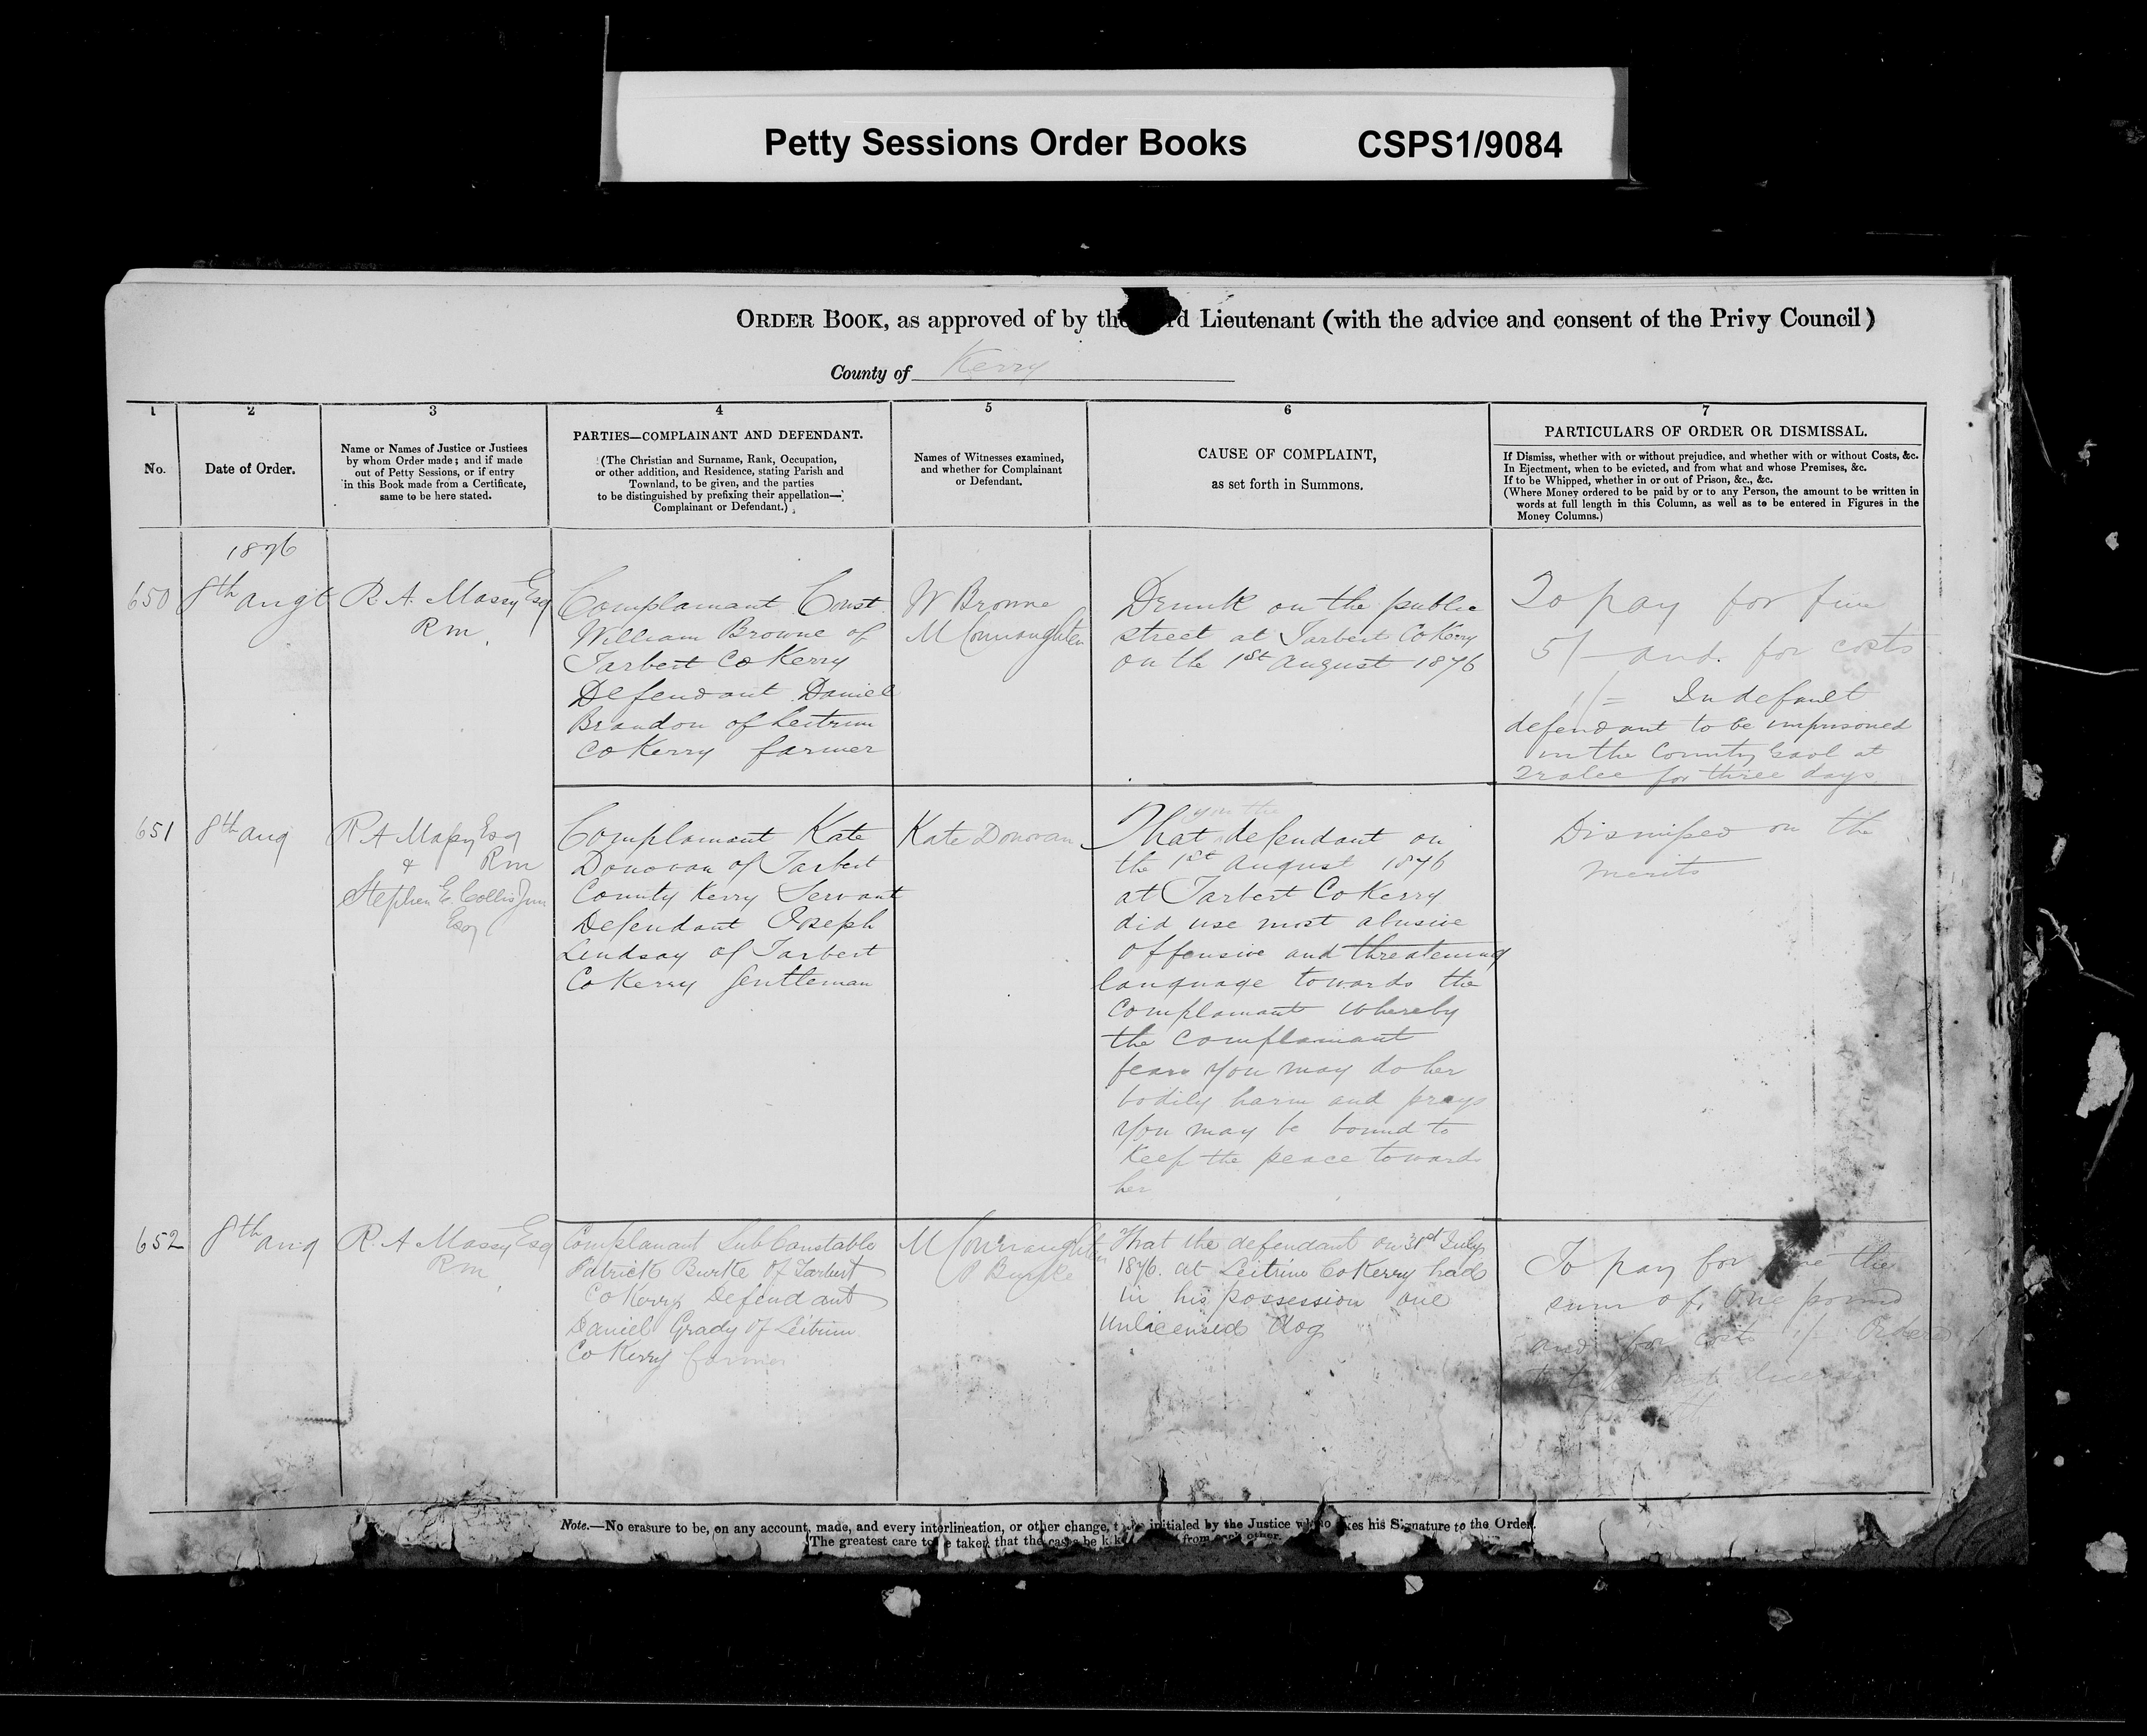 Petty Sessions Order Books CSPS1/9084
ORDER BOOK, as approved of by the Lieutenant (with the advice and consent of the Privy Council)
County of Kerry
1
No.
2
Date of Order.
3
Name or Names of Justice or Justices
by whom Order made; and if made
out of Petty Sessions, or if entry
in this Book made from a Certificate,
same to be here stated.
4
PARTIES—COMPLAINANT AND DEFENDANT.
(The Christian and Surname, Rank, Occupation,
or other addition, and Residence, stating Parish and
Townland, to be given, and the parties
to be distinguished by prefixing their appellation—
Complainant or Defendant.)
5
Names of Witnesses examined,
and whether for Complainant
or Defendant.
6
CAUSE OF COMPLAINT,
as set forth in Summons.
7
PARTICULARS OF ORDER OR DISMISSAL.
If Dismiss, whether with or without prejudice, and whether with or without Costs, &c.
In Ejectment, when to be evicted, and from what and whose Premises, &c.
If to be Whipped, whether in or out of Prison, &c., &c.
(Where Money ordered to be paid by or to any Person, the amount to be written in
words at full length in this Column, as well as to be entered in Figures in the
Money Columns.)
1876
650
8th augt
R. A. Massy Esq
Rm
Complainant Const.
William Browne of
Tarbert Co Kerry
Defendant Daniel
Brandon of Leitrim
Co Kerry farmer
W Browne
M Connaughten
Drunk on the public
street at Tarbert Co Kerry
on the 1st August 1876
To pay for fine
5/- and for costs
1/= In default
defendant to be imprisoned
in the County Gaol at
Tralee for three days
651
8th aug
R A Massy Esq
& Rm
Stephen E. Collis Jun
Esq
Complainant Kate
Donovan of Tarbert
County Kerry Servant
Defendant Joseph
Lindsay of Tarbert
Co Kerry Gentleman
Kate Donovan
you the
That defendant on
the 1st August 1876
at Tarbert Co Kerry
did use most abusive
offensive and threatening
language towards the
complainant whereby
the complainant
fears you may do her
bodily harm and prays
you may be bound to
keep the peace towards
her
Dismissed on the
merits
652
8th aug
R. A Massy Esq
Rm
Complainant Sub Constable
Patrick Burke of Tarbert
Co Kerry Defendant
Daniel Grady of Leitrim
Co Kerry farmer
M Connaughten
P Burke
That the defendant on 31st July
1876. at Leitrim Co Kerry had
in his possession one
unlicensed dog
To pay for the
sum of One pound
and for costs 1/- Order
Note.—No erasure to be, on any account, made, and every interlineation, or other change, initialed by the Justice his Signature to the Order.
The greatest care to be taken that the cases be from each other.